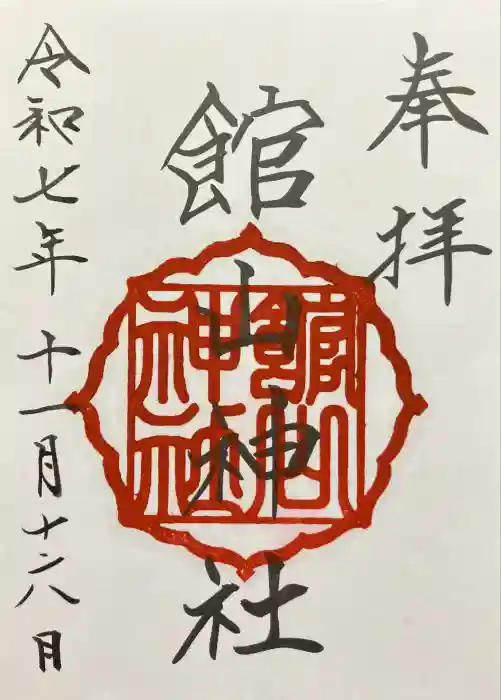 奉拝
館山神社
館山
神社
令和七年十一月十六月